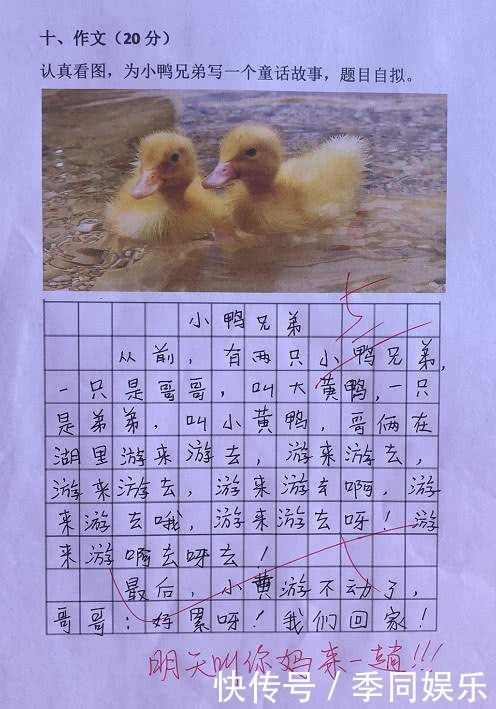 十、作文（20分）
认真看图，为小鸭兄弟写一个童话故事，题目自拟。
小鸭兄弟
从前，有两只小鸭兄弟，
一只是哥哥，叫大黄鸭，一只
是弟弟，叫小黄鸭，哥俩在
湖里游来游去，游来游去，
游来游去，游来游去啊，游
来游去哦，游来游去呀！游
来游啊去呀去！
最后，小黄游不动了，
哥哥：好累呀！我们回家！
明天叫你妈来一趟!!!
快传号／季同娱乐